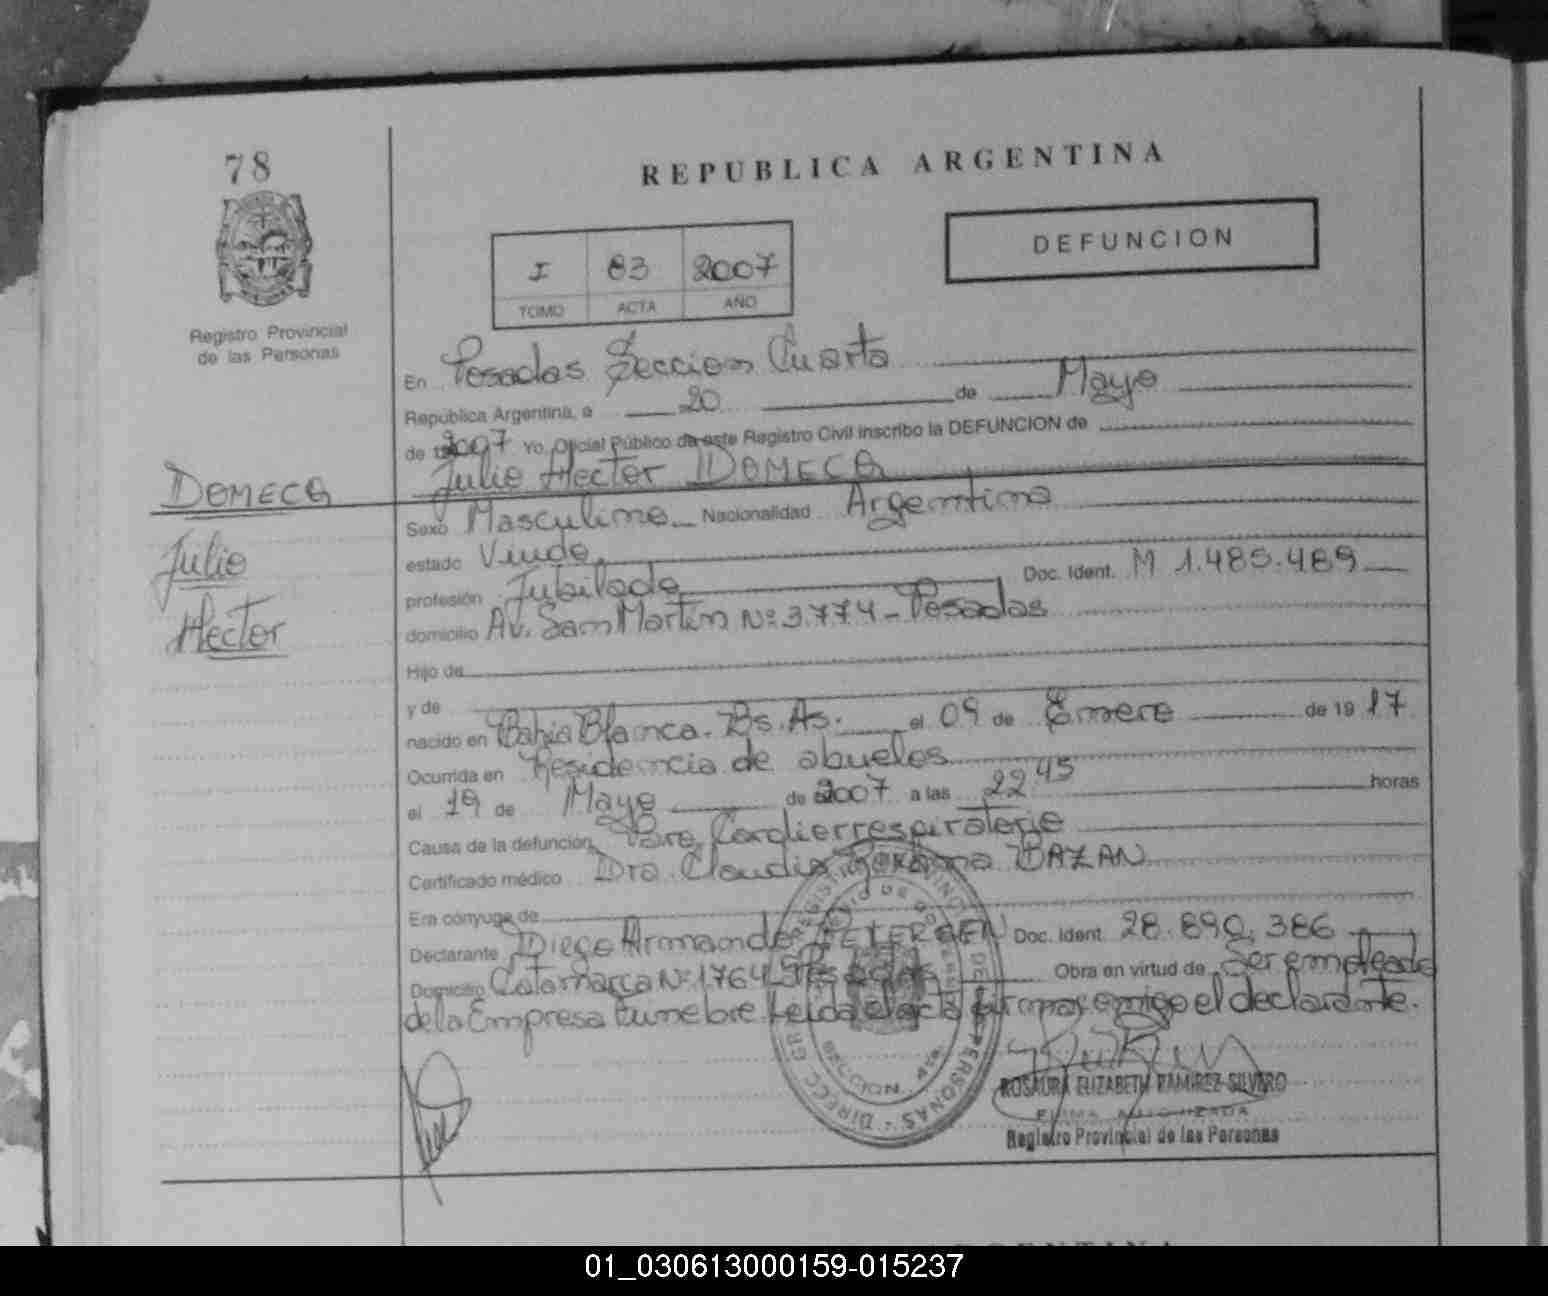 78
REPUBLICA ARGENTINA
DEFUNCION
I 83 2007
TOMO ACTA AÑO
Registro Provincial
de las Personas
En Posadas Sección Cuarta
República Argentina, a 20 de Mayo
de 2007 Yo, Oficial Público de este Registro Civil inscribo la DEFUNCION de
Julio Hector DOMECQ
DOMECQ
Julio
Hector
Sexo Masculino Nacionalidad Argentina
estado Viudo
profesión Jubilado Doc. Ident. M 1.485.489
domicilio Av. San Martin Nº 3.774 - Posadas
Hijo de
y de
nacido en Bahia Blanca. Bs. As. el 09 de Enero de 1917
Ocurrida en Residencia de abuelos
el 19 de Mayo de 2007 a las 22 45 horas
Causa de la defunción Paro Cardiorrespiratorio
Certificado médico Dra. Claudia BAZAN
Era cónyuge de
Declarante Diego Armando PETERSEN Doc. Ident. 28.890.386
Domicilio Catamarca Nº 1764 Posadas Obra en virtud de Ser empleado
de la Empresa Funebre Leida el acta firma conmigo el declarante.
SECCION 4ta
ROSAURA ELIZABETH RAMIREZ SILVERO
FIRMA AUTORIZADA
Registro Provincial de las Personas
ARGENTINA
01_030613000159-015237